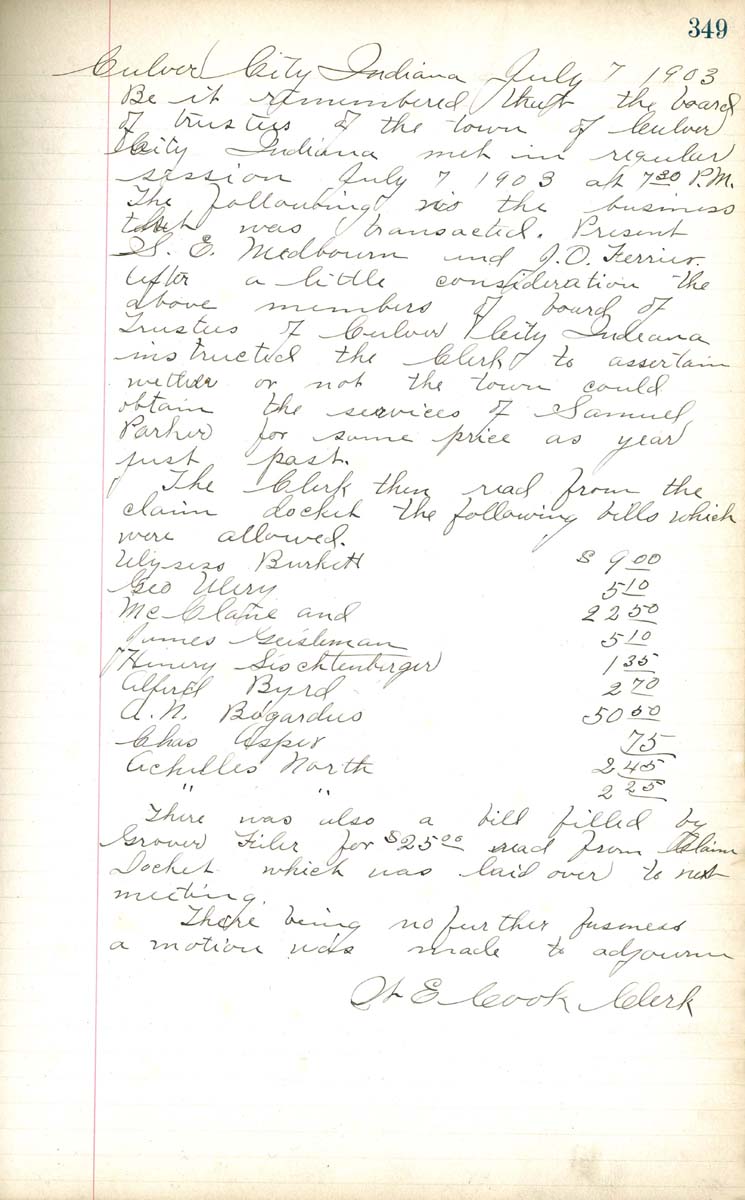 349
Culver City Indiana July 7 1903
Be it remembered that the board
of trustees of the town of Culver
City Indiana met in regular
session July 7 1903 at 7 30 P.M.
The following is the business
that was transacted. Present
S. E. Medbourn and J. O. Ferrier.
After a little consideration the
above members of board of
Trustees of Culver City Indiana
instructed the Clerk to assertain
wether or not the town could
obtain the services of Samuel
Parker for same price as year
just past.
The Clerk then read from the
claim docket the following bills which
were allowed.
Ulysess Burkett $ 9 00
Geo Ulery 5 10
Mc Clane and 22 50
James Geisleman 5 10
Hinery 1 35
Alferd Byrd 2 70
A. N. Bogardus 50 50
Chas Asper 75
Achilles North 2 45
" " 2 25
There was also a bill filled by
Grover Filer for $25 00 read from Claim
Docket which was laid over to next
meeting.
There being no further business
a motion was made to adjourn
E Cook Clerk